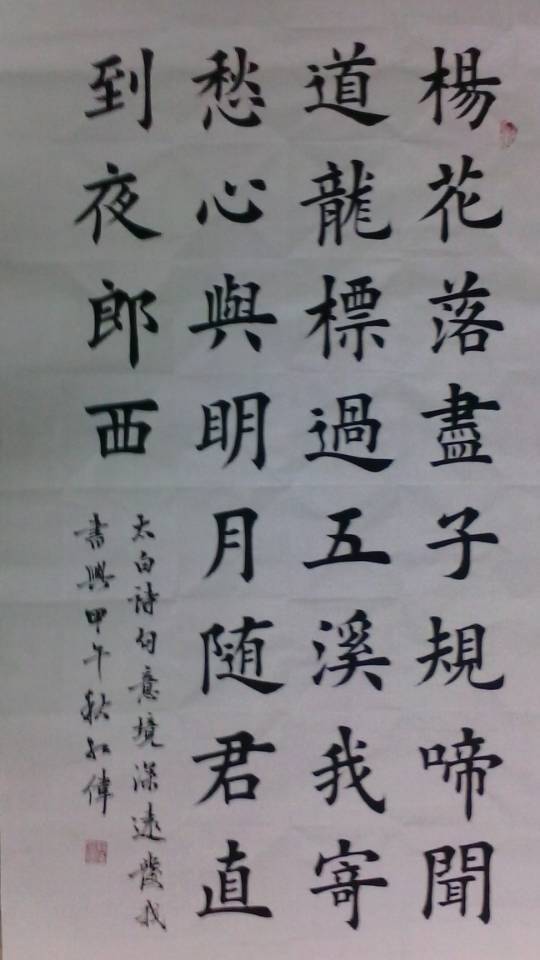 楊花落盡子規啼聞
道龍標過五溪我寄
愁心與明月随君直
到夜郎西
太白诗句意境深远發我
書興甲午秋紅偉